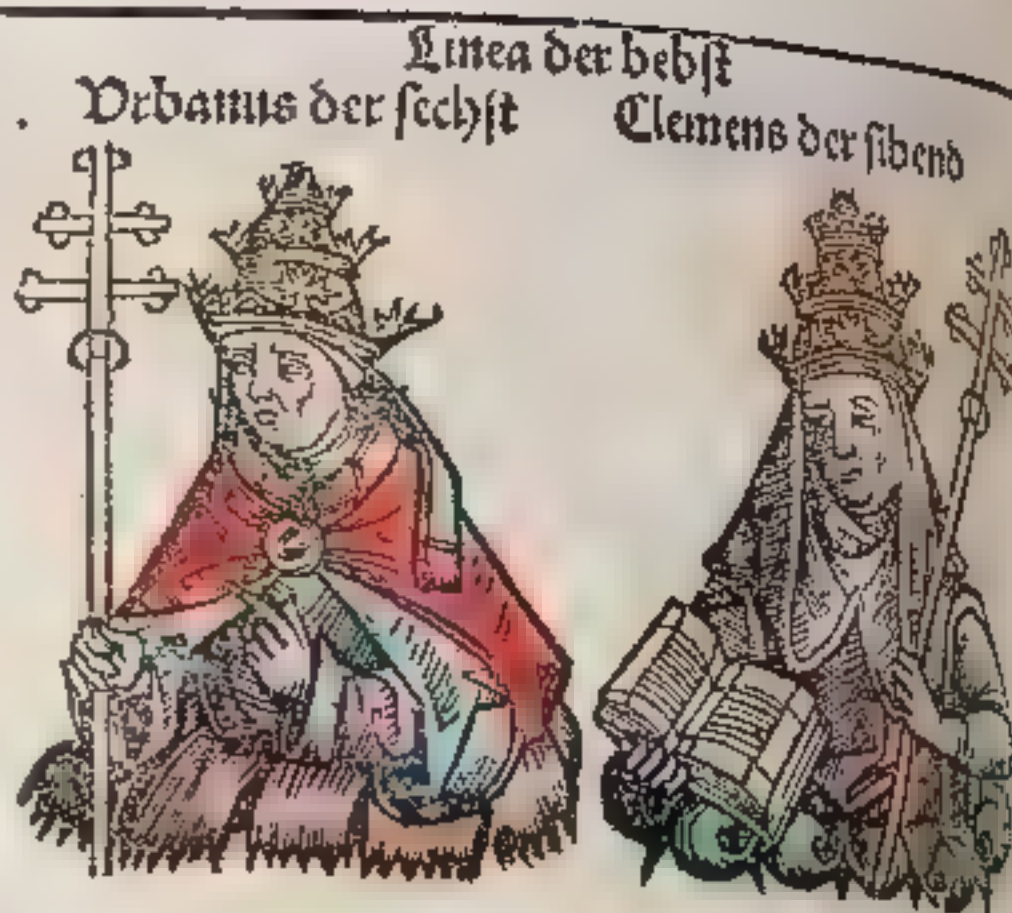 Linea der bebſt
Vrbanus der ſechſt
Clemens der ſibend